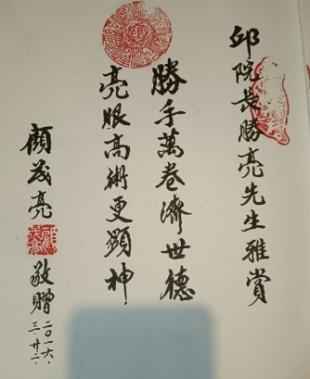 邱院長勝亮先生雅賞
勝手萬卷濟世德
亮眼高術更顯神
顏茂亮
敬贈
二〇一六.
三.廿二.